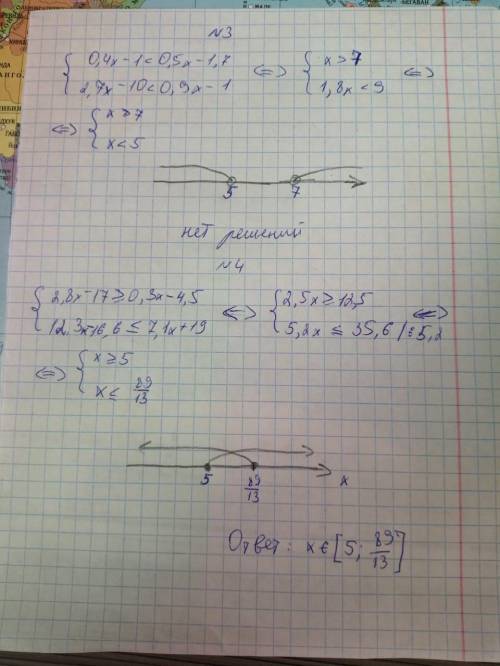 №3
{ 0,4x-1<0,5x-1,7 <=> { x>7 <=>
{ 2,7x-10<0,9x-1 { 1,8x<9
<=> { x>7
{ x<5
5 7
нет решений
№4
{ 2,8x-17≥0,3x-4,5 <=> { 2,5x≥12,5 <=>
{ 12,3x-16,6≤7,1x+19 { 5,2x≤35,6 |:5,2
<=> { x≥5
{ x≤ 89/13
5 89/13 x
Ответ: x∈[5; 89/13]